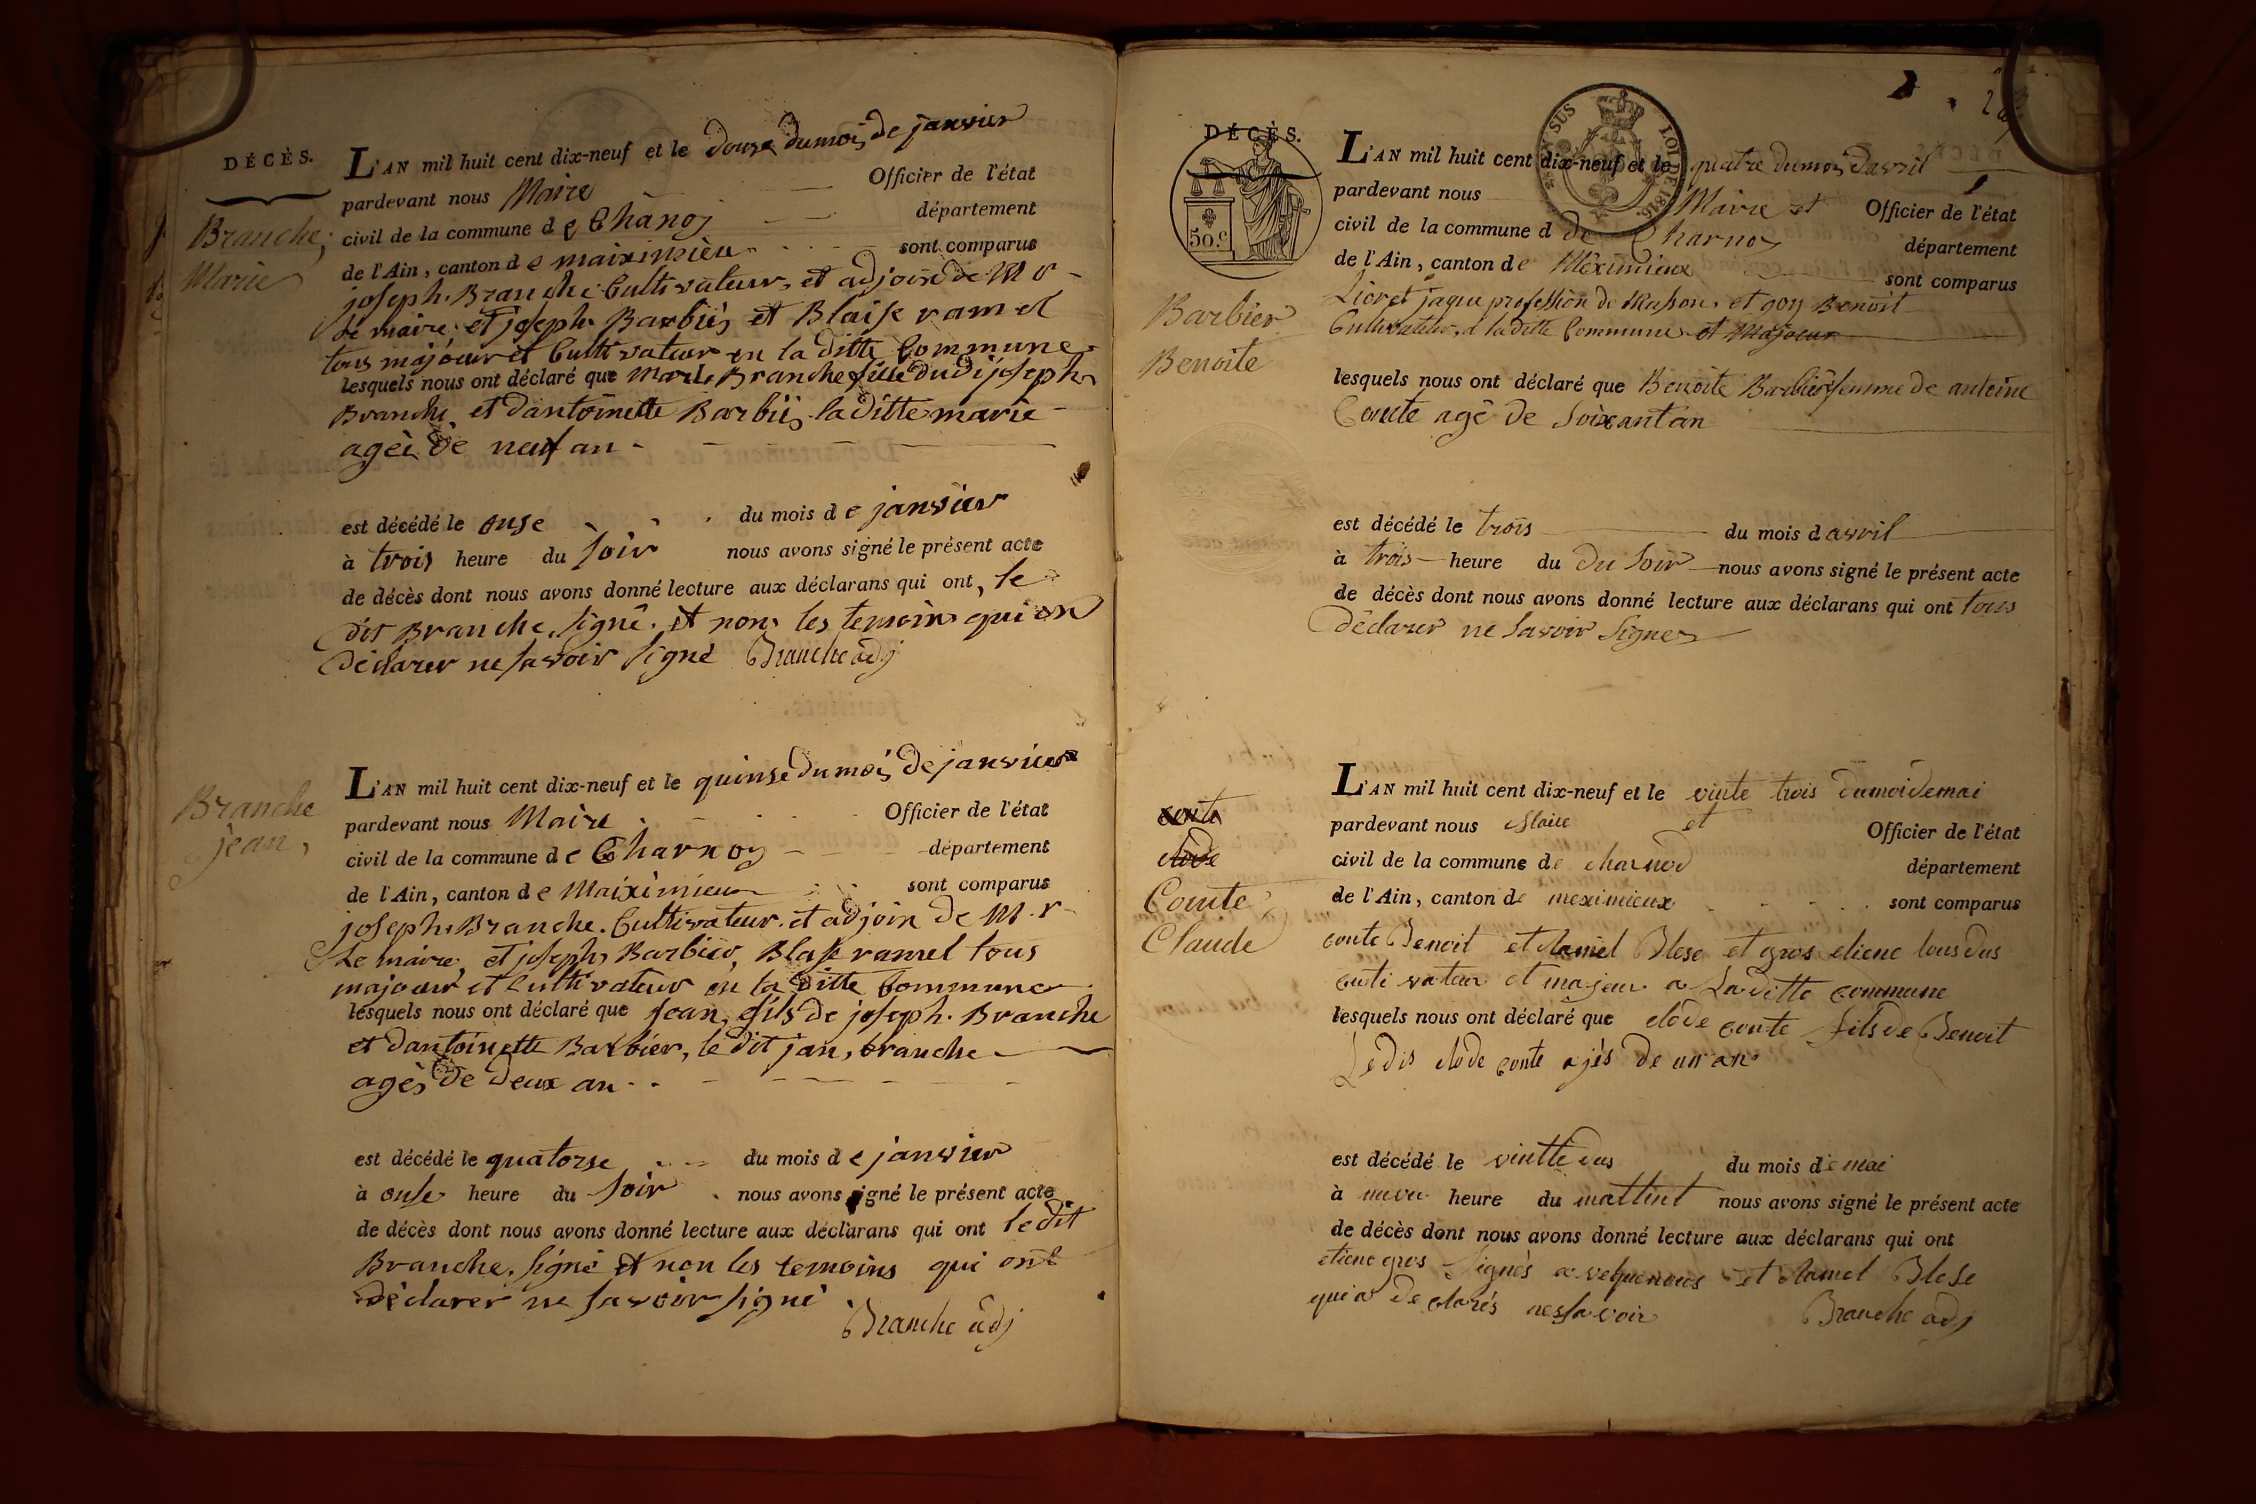 DÉCÈS.
Branche,
Marie
L'AN mil huit cent dix-neuf et le douse du mois de janvier
pardevant nous Maire Officier de l'état
civil de la commune de Chânoj département
de l'Ain, canton de maiximieu sont comparus
joseph Branche Cultivateur, et adjoin de M r
le maire, et joseph Barbiés et Blaise ramel
tous majeur et Cultivateur en la ditte Commune
lesquels nous ont déclaré que Marie Branche fille du di joseph
Branche et dantoinette Barbiés la ditte marie
ageè de neuf an
est décédé le onse du mois de janvier
à trois heure du soir nous avons signé le présent acte
de décès dont nous avons donné lecture aux déclarans qui ont, le
dit Branche, signé. et non, les temoins qui on
declarer ne savoir signé Branche adj
Branche
jean,
L'AN mil huit cent dix-neuf et le quinse du mois de janvier
pardevant nous Maire Officier de l'état
civil de la commune de Charnoy département
de l'Ain, canton de Maiximieu sont comparus
joseph Branche. Cultivateur. et adjoin de M. r
Le maire, et joseph Barbier, Blaise ramel tous
majeur et Cultivateur en la ditte Commune
lesquels nous ont déclaré que Jean, fils de joseph. Branche
et dantoinette Barbier, le dit jan, branche
agès de deux an
est décédé le quatorse du mois de janvier
à onse heure du soir nous avons signé le présent acte
de décès dont nous avons donné lecture aux déclarans qui ont le dit
Branche, signé et non les temoins qui ont
déclarer ne savoir signé
Branche adj
DÉCÈS.
50.c
SUS
LOI DE 1816.
Barbier
Benoite
L'AN mil huit cent dix-neuf et le quatre du mois davril
pardevant nous Maire et Officier de l'état
civil de la commune d de Charnoy département
de l'Ain, canton de Mèximieux sont comparus
Lioret jaque profession de Masson, et goy Benoit
Cultivateur, à la ditte Commune et Majeur
lesquels nous ont déclaré que Benoite Barbier femme de antoine
Comte agé de Soixant an
est décédé le trois du mois d avril
à trois heure du du Soir nous avons signé le présent acte
de décès dont nous avons donné lecture aux déclarans qui ont tous
déclarer ne Savoir Signer
conte
clode
Comte
Claude
L'AN mil huit cent dix-neuf et le vinte trois du moi de mai
pardevant nous Maire et Officier de l'état
civil de la commune de charnod département
de l'Ain, canton de meximieux sont comparus
conte Benoit et Ramel Blese et gros etiene tous dus
culti vateur et majeur a La ditte commune
lesquels nous ont déclaré que clode conte fils de Benoit
Le dis clode conte ajès de un an
est décédé le vintte dus du mois de mai
à neven heure du mattint nous avons signé le présent acte
de décès dont nous avons donné lecture aux déclarans qui ont
etiene gros Signès avelquenous et Ramel Blese
qui a declarés nes sa voir Branche adj